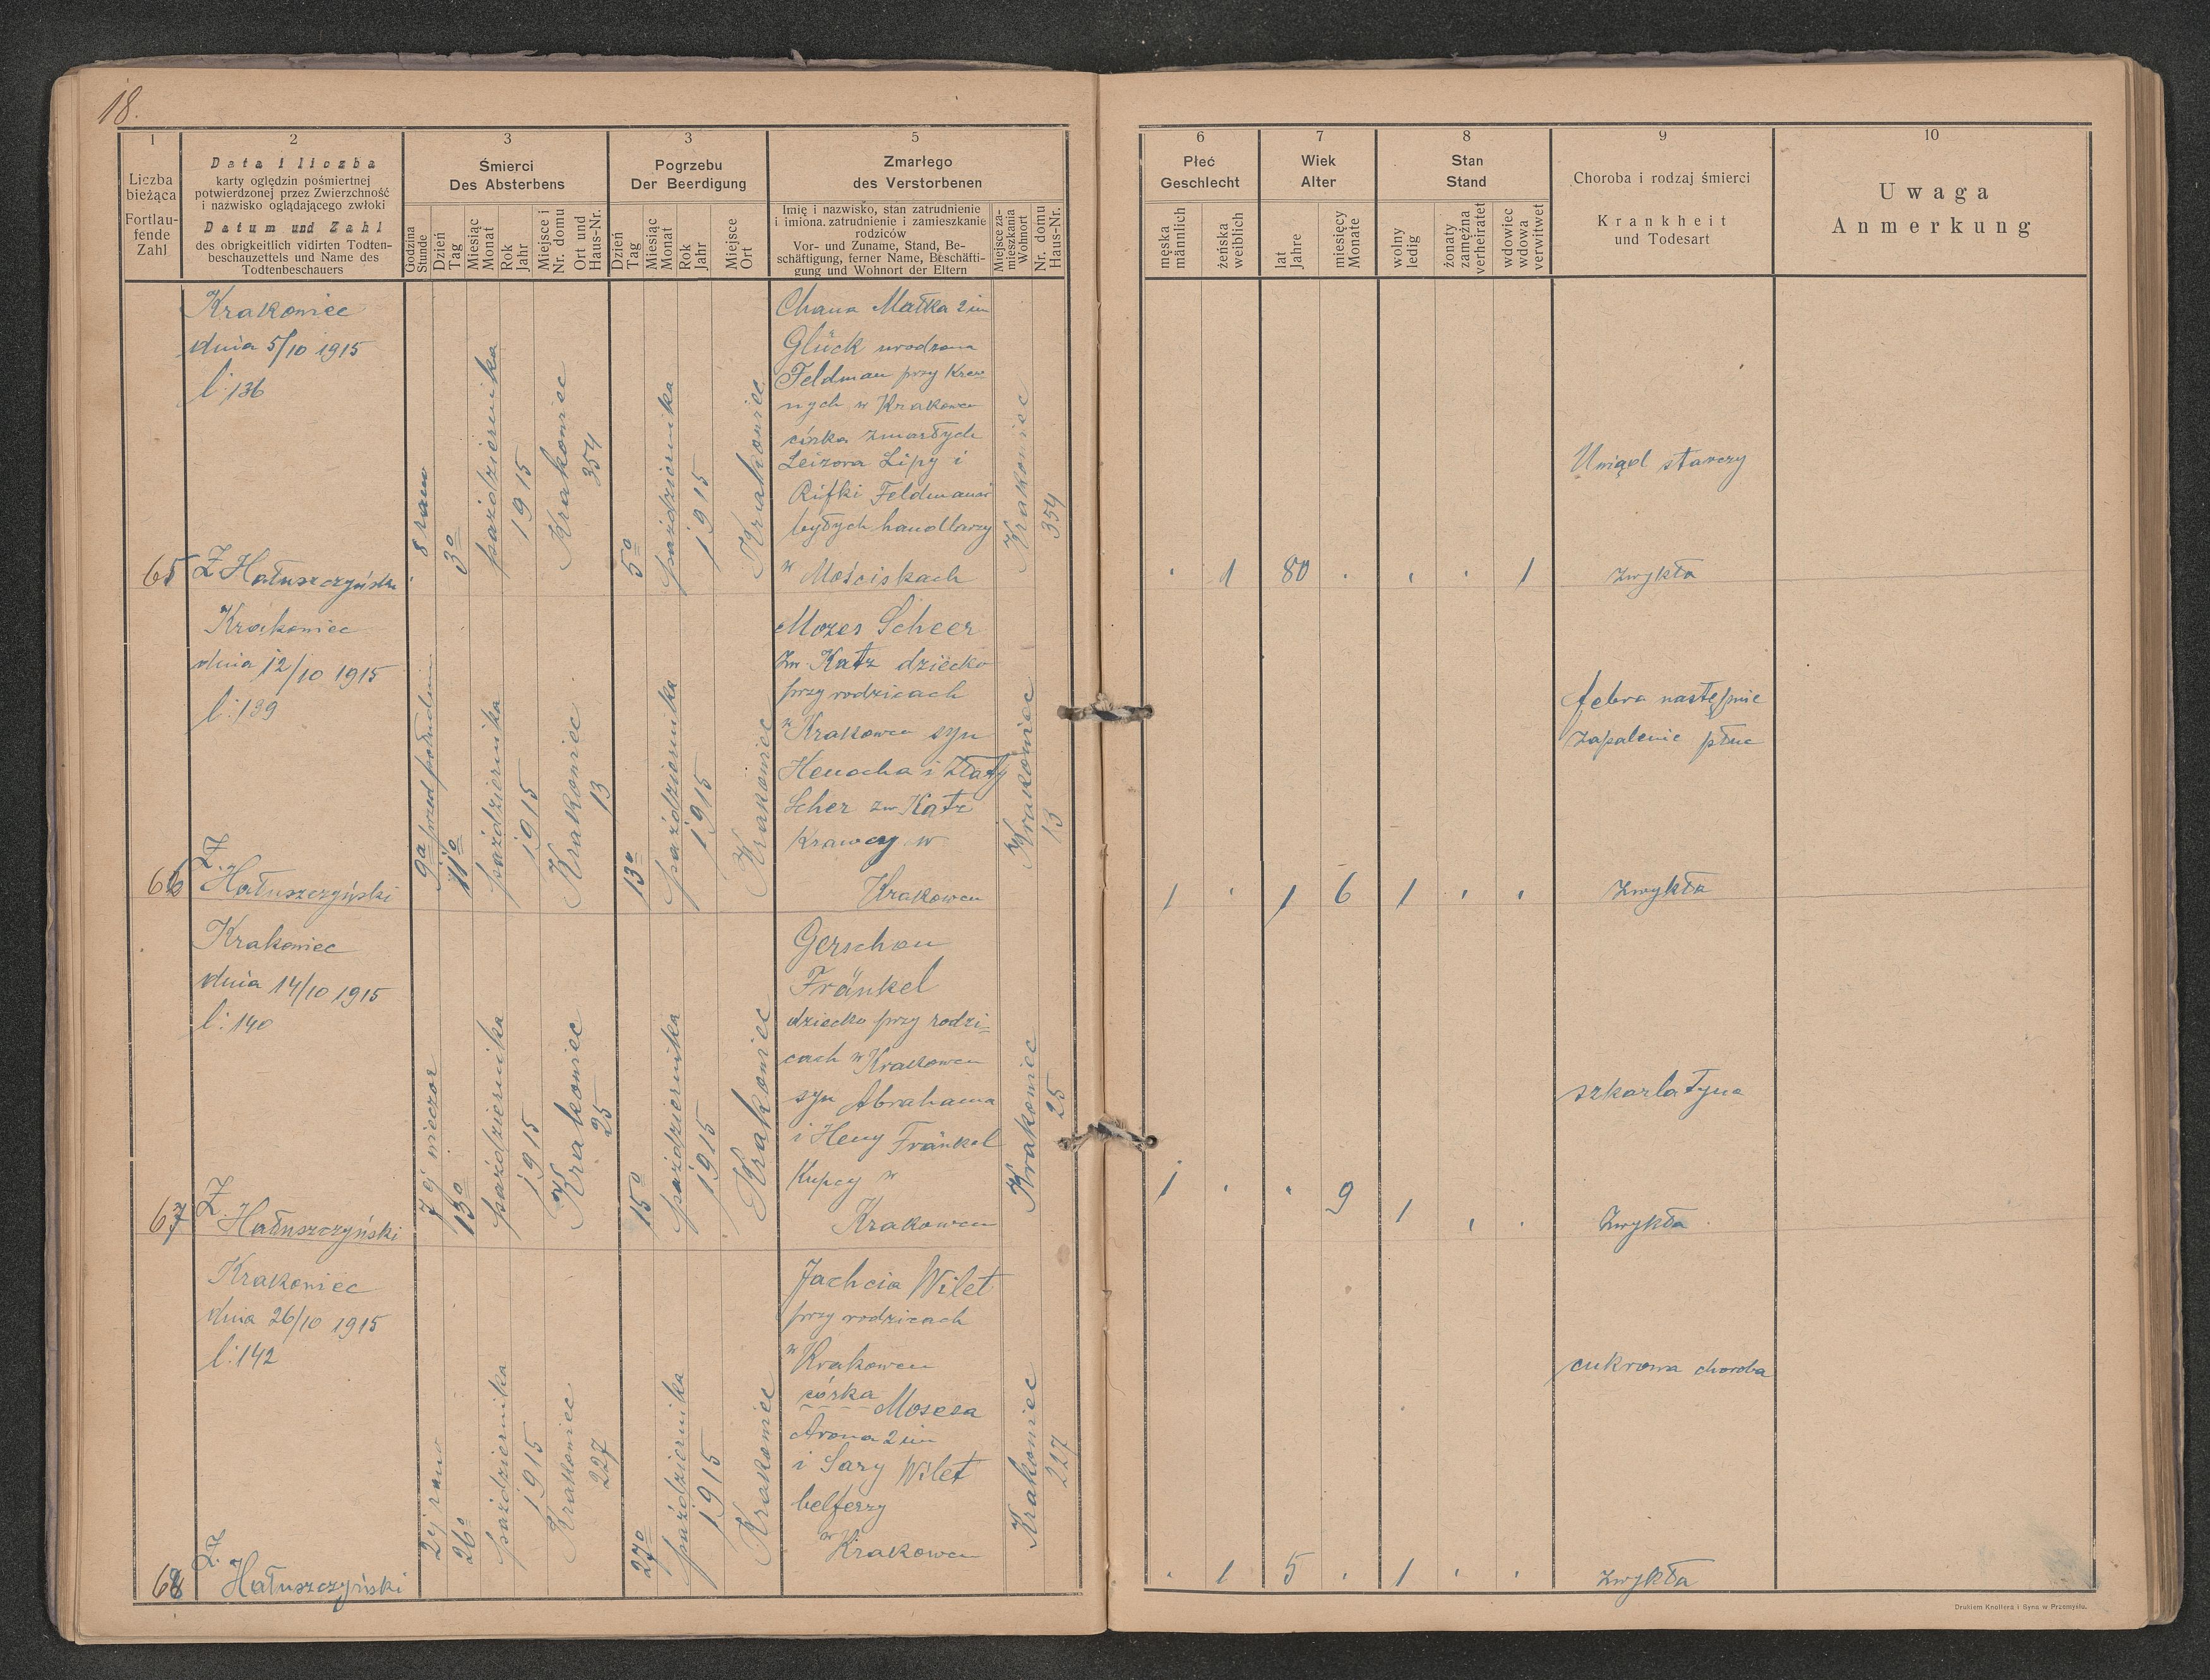 18.
1
2
3
3
5
Liczba bieżąca
Fortlau-
fende
Zahl
Data i liczba
karty oględzin pośmiertnej
potwierdzonej przez Zwierzchność
i nazwisko oglądającego zwłoki
Datum und Zahl
des obrigkeitlich vidirten Todten-
beschauzettels und Name des
Todtenbeschauers
Śmierci
Des Absterbens
Godzina
Stunde
Dzień
Tag
Miesiąc
Monat
Rok
Jahr
Miejsce i
Nr. domu
Ort und
Haus-Nr.
Pogrzebu
Der Beerdigung
Dzień
Tag
Miesiąc
Monat
Rok
Jahr
Miejsce
Ort
Zmarłego
des Verstorbenen
Imię i nazwisko, stan zatrudnienie
i imiona. zatrudnienie i zamieszkanie
rodziców
Vor- und Zuname, Stand, Be-
schäftigung, ferner Name, Beschäfti-
gung und Wohnort der Eltern
Miejsce za-
mieszkania
Wohnort
Nr. domu
Haus-Nr.
6
7
8
9
10
Płeć
Geschlecht
męska
männlich
żeńska
weiblich
Wiek
Alter
lat
Jahre
miesięcy
Monate
Stan
Stand
wolny
ledig
żonaty
zamężna
verheiratet
wdowiec
wdowa
verwitwet
Choroba i rodzaj śmierci
Krankheit
und Todesart
Uwaga
Anmerkung
65
Krakowiec
dnia 5/10 1915
l: 136
Z Hałuszczyński
8 rano
3o
października
1915
Krakowiec
354
5o
października
1915
Krakowiec
Chana Małka 2 im
Glück urodzona
Feldman przy Krew
nych w Krakowcu
córka zmarłych
Leizora Lipy i
Rifki Feldmanów
byłych handlarzy
w Mościskach
Krakowiec
354
. 1 80 . . . 1
Uwiąd starczy
zwykła
66
Krakowiec
dnia 12/10 1915
l: 139
Z.
Hałuszczyński
9a przed południem
11o
października
1915
Krakowiec
13
13o
października
1915
Krakowiec
Mozes Scheer
zw Katz dziecko
przy rodzicach
w Krakowcu syn
Henocha i Złaty
Scher zw Katz
Krawcy w
Krakowcu
Krakowiec
13
1 . 1 6 1 . .
febra następnie
zapalenie płuc
Zwykła
67
Krakowiec
dnia 14/10 1915
l: 140
Z.
Hałuszczyński
7 ej wieczor
13o
października
1915
Krakowiec
25
15o
października
1915
Krakowiec
Gerschon
Fränkel
dziecko przy rodzi-
cach w Krakowcu
syn Abrahama
i Heny Fränkel
Kupcy w
Krakowcu
Krakowiec
25
1 . . 9 1 . .
szkarlatyna
Zwykła
68
Krakowiec
dnia 26/10 1915
l: 142
Z.
Hałuszczyński
2 ej rano
26o
października
1915
Krakowiec
227
27o
października
1915
Krakowiec
Jachcia Wilet
przy rodzicach
w Krakowcu
córka Mosesa
Arona 2 im
i Sary Wilet
belferzy
w Krakowcu
Krakowiec
227
. 1 5 . 1 . .
cukrowa choroba
zwykła
Drukiem Knollera i Syna w Przemyślu.